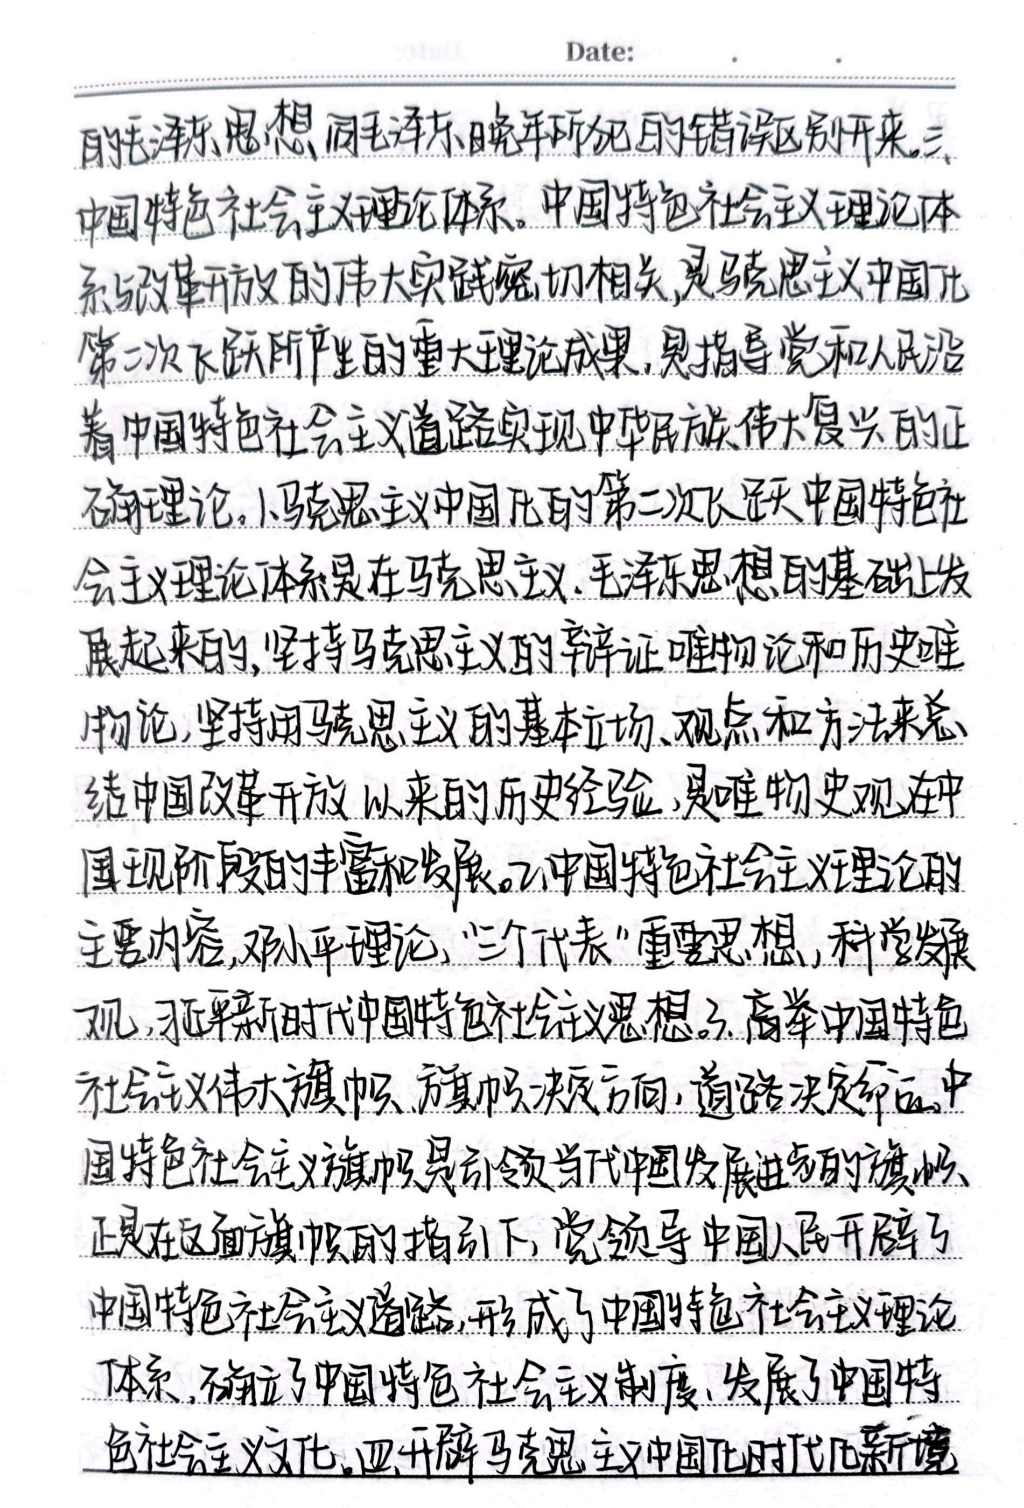 Date:
的毛泽东思想同毛泽东晚年所犯的错误区别开来。三、
中国特色社会主义理论体系。中国特色社会主义理论体
系与改革开放的伟大实践密切相关,是马克思主义中国化
第二次飞跃所产生的重大理论成果,是指导党和人民沿
着中国特色社会主义道路实现中华民族伟大复兴的正
确理论。1、马克思主义中国化的第二次飞跃中国特色社
会主义理论体系是在马克思主义、毛泽东思想的基础上发
展起来的,坚持马克思主义的辩证唯物论和历史唯
物论,坚持用马克思主义的基本立场、观点和方法来总
结中国改革开放以来的历史经验,是唯物史观在中
国现阶段的丰富和发展。2、中国特色社会主义理论的
主要内容,邓小平理论、“三个代表”重要思想,科学发展
观,习近平新时代中国特色社会主义思想。3、高举中国特色
社会主义伟大旗帜、旗帜决定方向,道路决定命运。中
国特色社会主义旗帜是引领当代中国发展进步的旗帜、
正是在这面旗帜的指引下,党领导中国人民开辟了
中国特色社会主义道路,形成了中国特色社会主义理论
体系,确立了中国特色社会主义制度、发展了中国特
色社会主义文化。四、开辟马克思主义中国化时代化新境